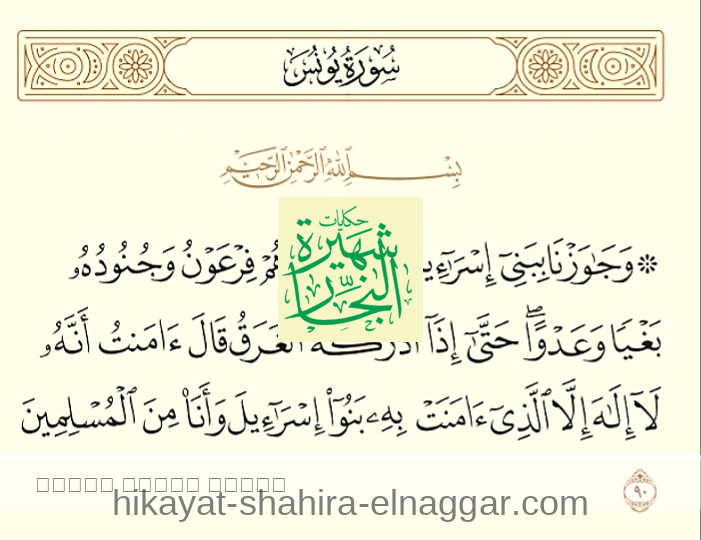 سُورَةُ يُونُسَ
بِسْمِ ٱللَّهِ ٱلرَّحْمَٰنِ ٱلرَّحِيمِ
حكايات
شهيرة
النجار
۞ وَجَٰوَزْنَا بِبَنِىٓ إِسْرَٰٓءِي هُمْ فِرْعَوْنُ وَجُنُودُهُۥ
بَغْيًا وَعَدْوًا ۖ حَتَّىٰٓ إِذَآ أَدْرَكَهُ ٱلْغَرَقُ قَالَ ءَامَنتُ أَنَّهُۥ
لَآ إِلَٰهَ إِلَّا ٱلَّذِىٓ ءَامَنَتْ بِهِۦ بَنُوٓا۟ إِسْرَٰٓءِيلَ وَأَنَا۠ مِنَ ٱلْمُسْلِمِينَ
٩٠
hikayat-shahira-elnaggar.com